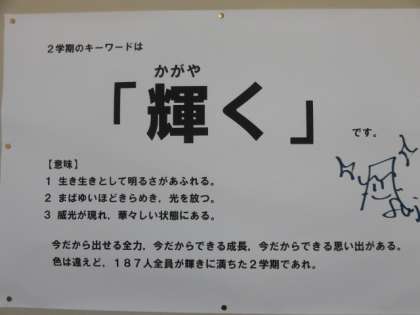 2学期のキーワードは
かがや
「輝く」
です。
【意味】
1 生き生きとして明るさがあふれる。
2 まばゆいほどきらめき，光を放つ。
3 威光が現れ，華々しい状態にある。
今だから出せる全力，今だからできる成長，今だからできる思い出がある。
色は違えど，187人全員が輝きに満ちた2学期であれ。